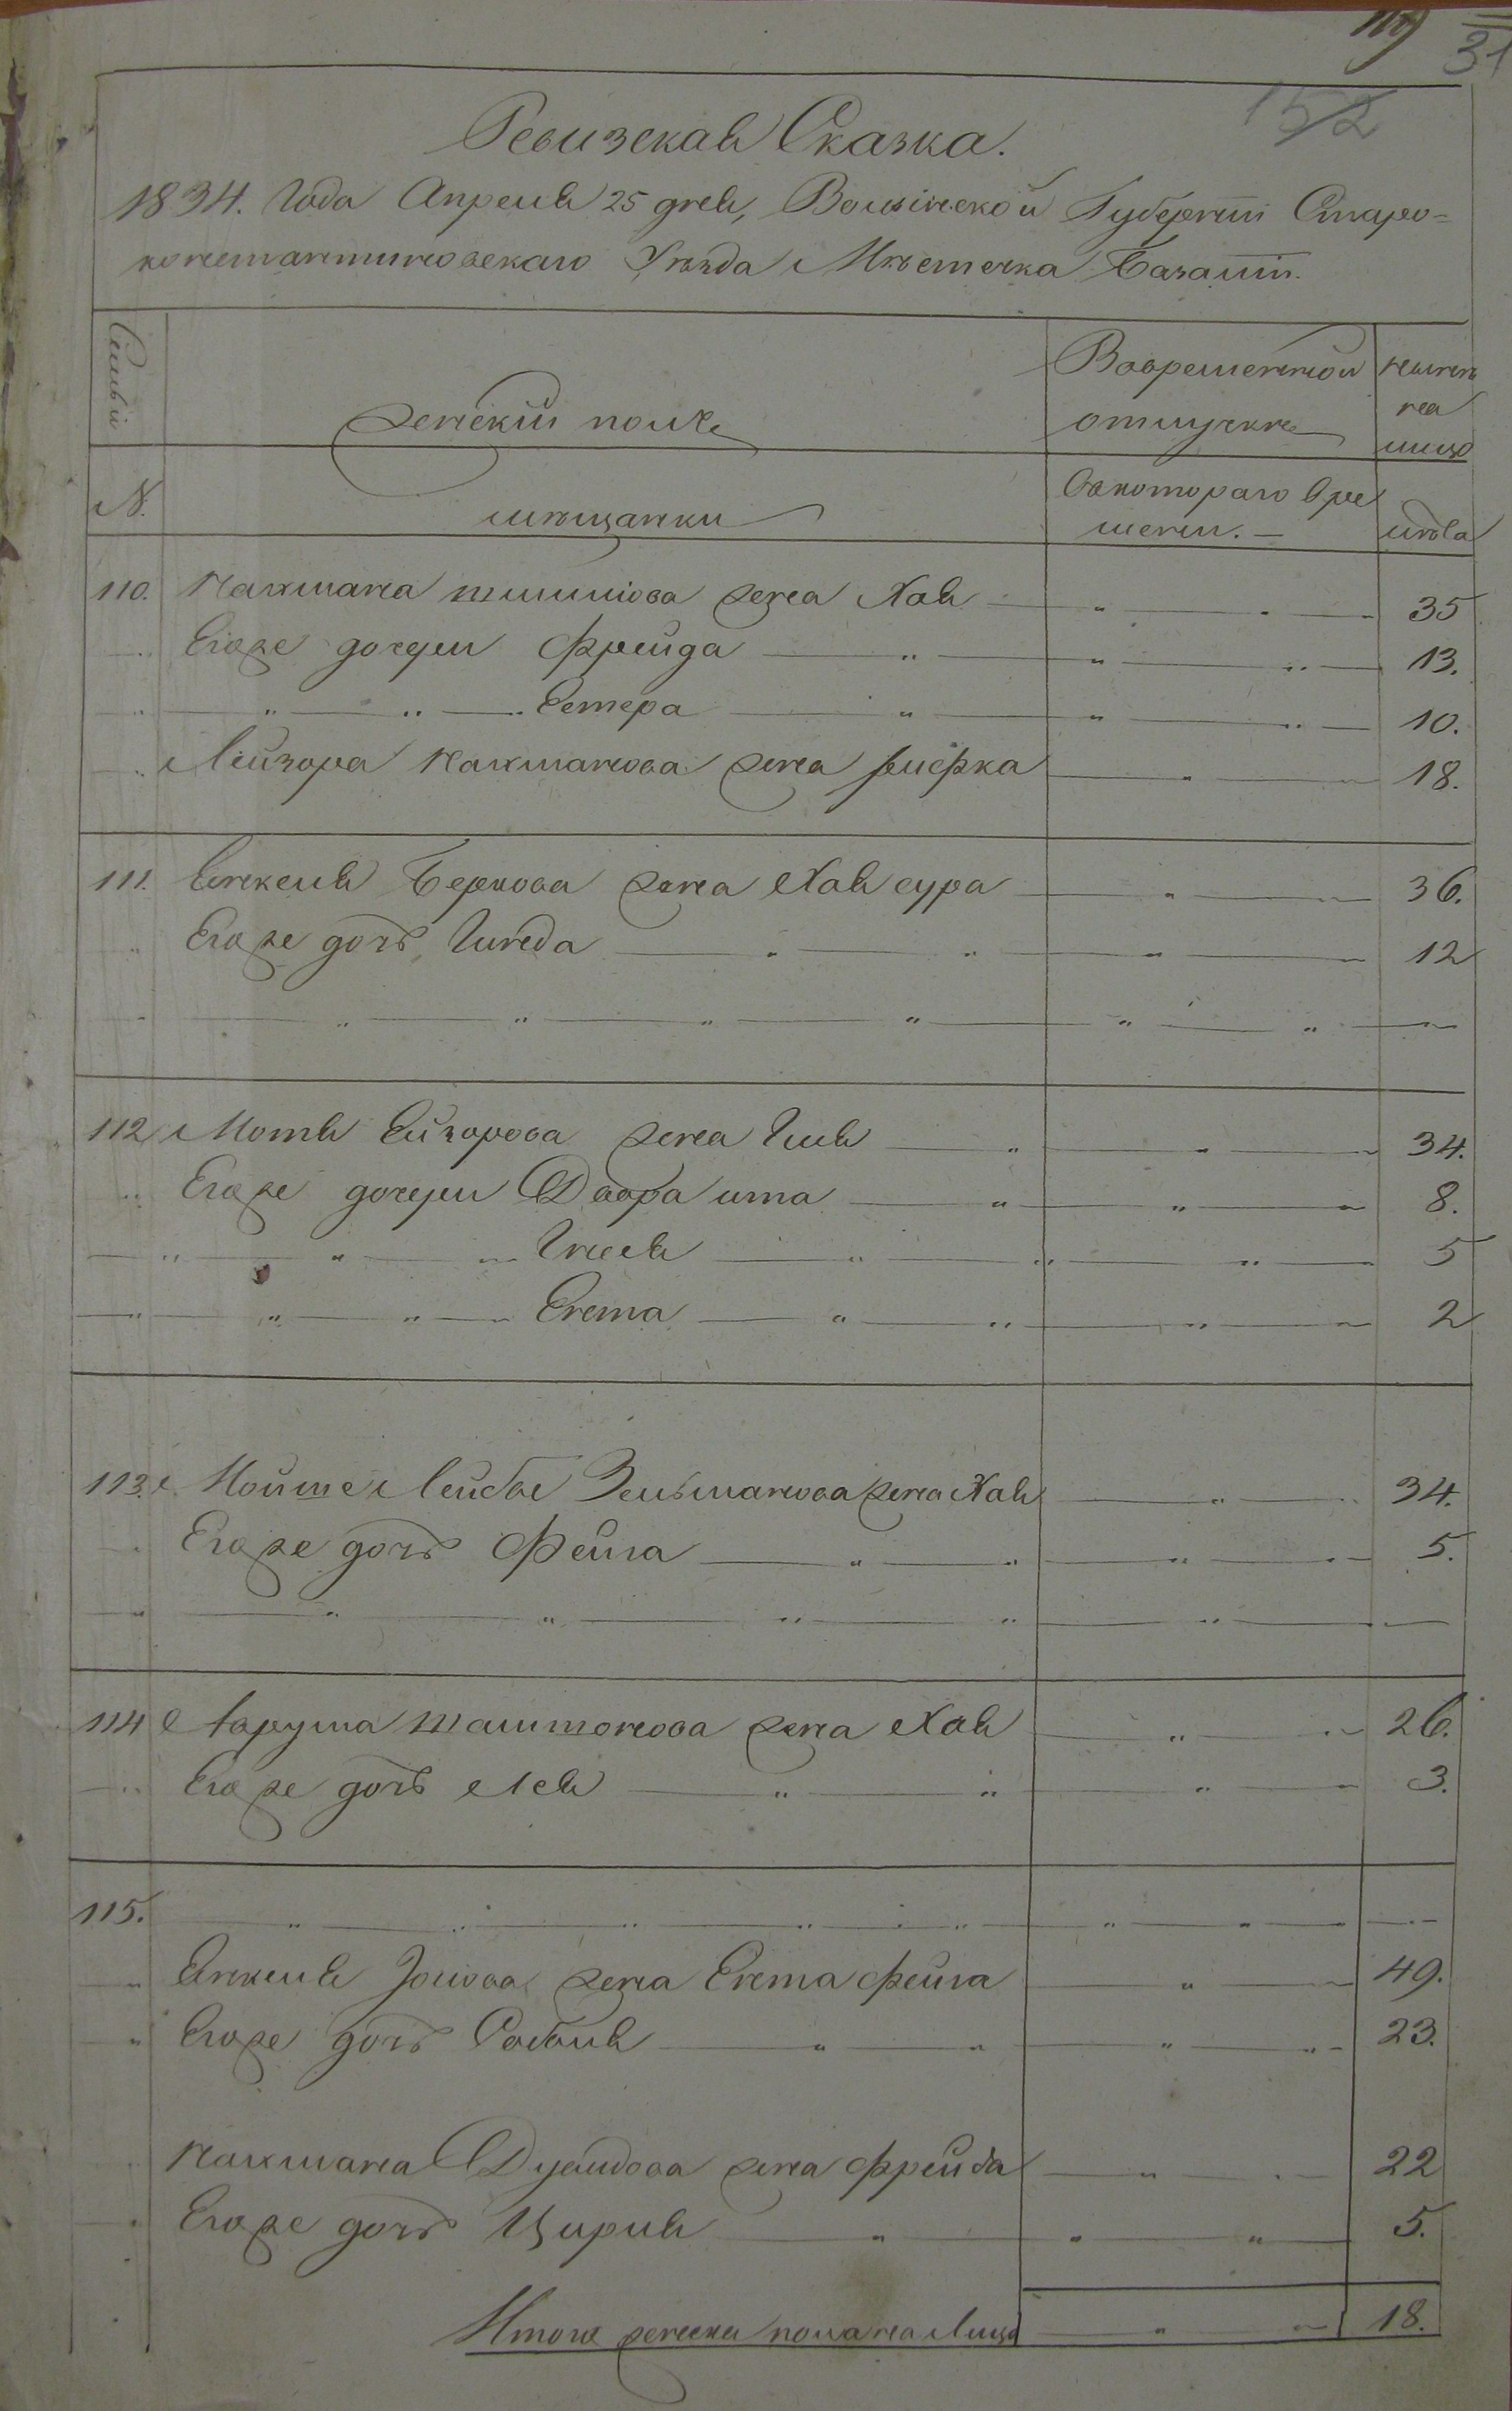 31
152
Ревизская Сказка.
1834. Года Апреля 25 дня, Волынской Губернии Старо-
константиновскаго Уезда Местечка Базалии.
Семьи
женский полъ
Вовременной
отлучке
нынѣ
на
лицо
N.
мещанки
Скотораго вре
мени. —
лѣта
110. Нахмана Шлиомова жена Хая — " — " — 35
Егоже дочери Фрейда — " — " — " — 13.
" — " — " — Естера — " — " — " — 10.
" Лейзора Нахманова жена Рифка — " — 18.
111. Янкеля Беркова жена Хая сура — " — 36.
" Егоже дочь Гинда — " — " — " — 12
" — " — " — " — " — " — " —
112 Мотя Ейзорова жена Гиля — " — " — 34.
" Егоже дочери Двора ита — " — " — 8.
— " — " — Гнеся — " — " — " — 5
— " — " — " — Ента — " — " — " — 2
113. Мойше Лейбы Зельманова жена Хая — " — 34.
" Егоже дочь Фейга — " — " — " — " — 5.
— " — " — " — " — " — " —
114 Маруша жена Хая — " — 26.
— " Егоже дочь Лея — " — " — " — 3.
115. — " — " — " — " — " — " — " —
— " Янкеля жена Ента фейга — " — 49.
— " Егоже дочь — " — " — " — " — 23.
Нахмана жена Фрейда — " — 22
— " Егоже дочь Цирля — " — " — " — 5.
Итого женска пола на Лицо — " — 18.